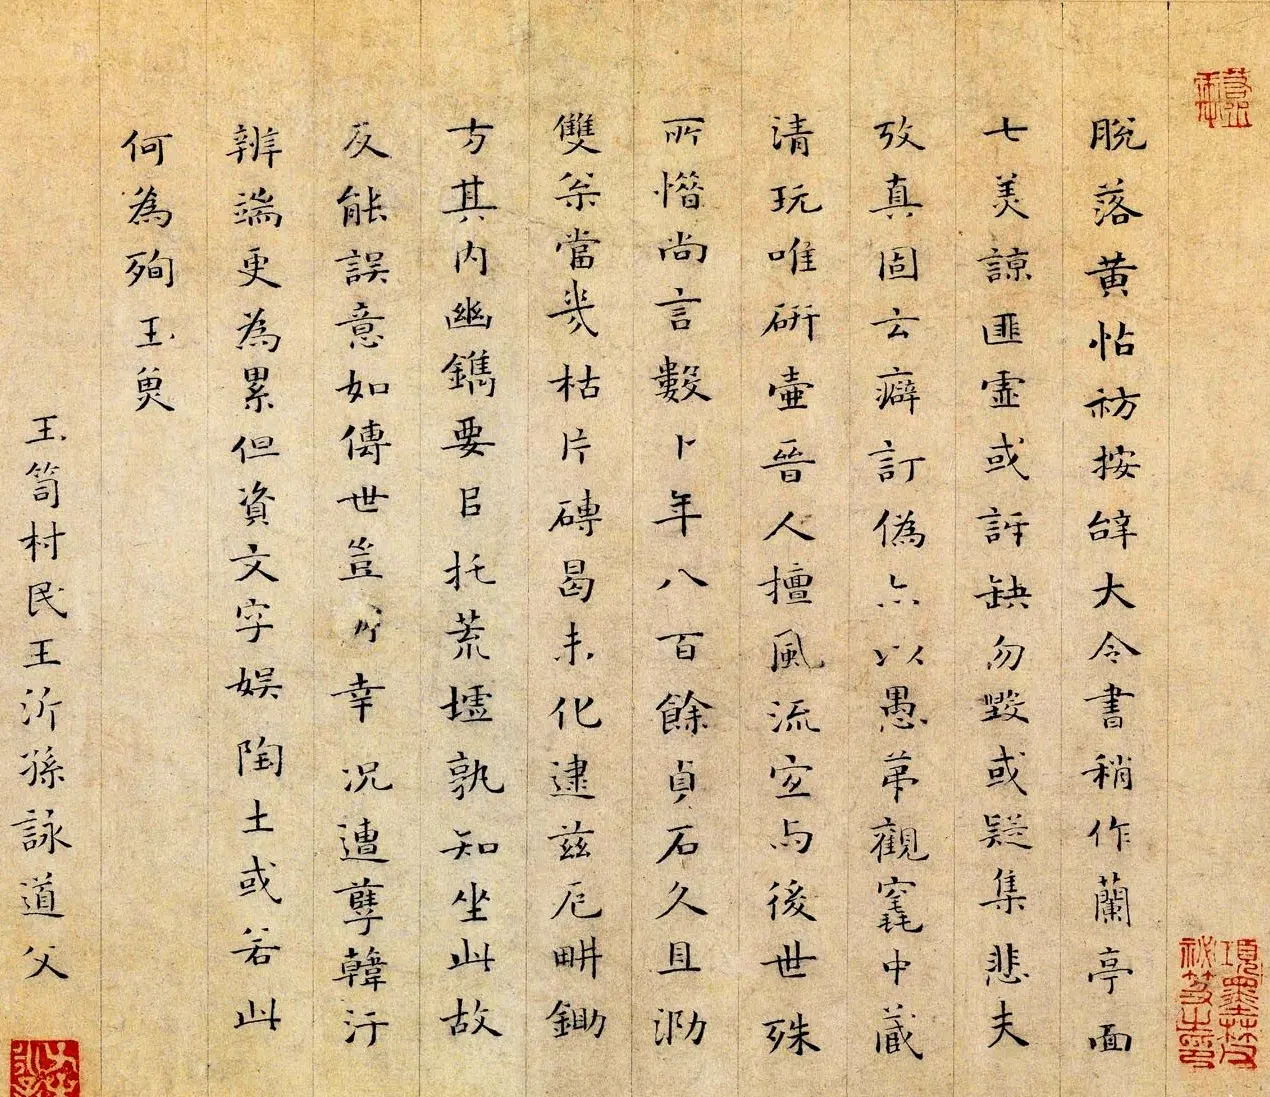 脫落黃怙紡按辝大令書稍作蘭亭面
七美諒匪虛或訝缺勿毀或疑集悲夫
攷真固云癖訂偽亦以愚苐觀窀中藏
清玩唯硏壷晉人擅風流寔与後世殊
所惜尚言數卜年八百餘貞石久且泐
雙㭒當幾枯片磚曷未化逮兹厄畊鋤
方其内幽鐫要㠯托荒墟孰知坐此故
反能誤意如傳世豈所幸况遭孽韓汙
辨端更為累但資文字娱陶土或若此
何為殉玉奐
玉笥村民王沂孫詠道父
項墨林父
祕笈之印